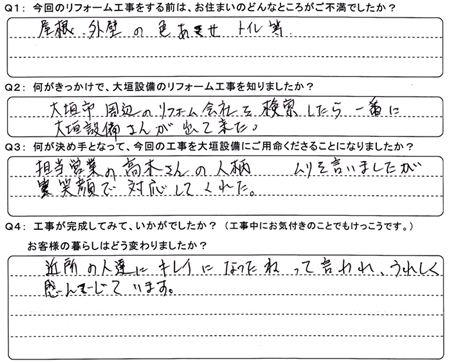 Q1: 今回のリフォーム工事をする前は、お住まいのどんなところがご不満でしたか？
屋根、外壁の色あせ トイレ等
Q2: 何がきっかけで、大垣設備のリフォーム工事を知りましたか？
大垣市周辺のリフォーム会社を検索したら一番に
大垣設備さんが出て来た。
Q3: 何が決め手となって、今回の工事を大垣設備にご用命くださることになりましたか？
担当営業の高木さんの人柄 ムリを言いましたが
笑顔で対応してくれた。
Q4: 工事が完成してみて、いかがでしたか？（工事中にお気付きのことでもけっこうです。）
お客様の暮らしはどう変わりましたか？
近所の人達にキレイになったねって言われ、うれしく
感んじています。